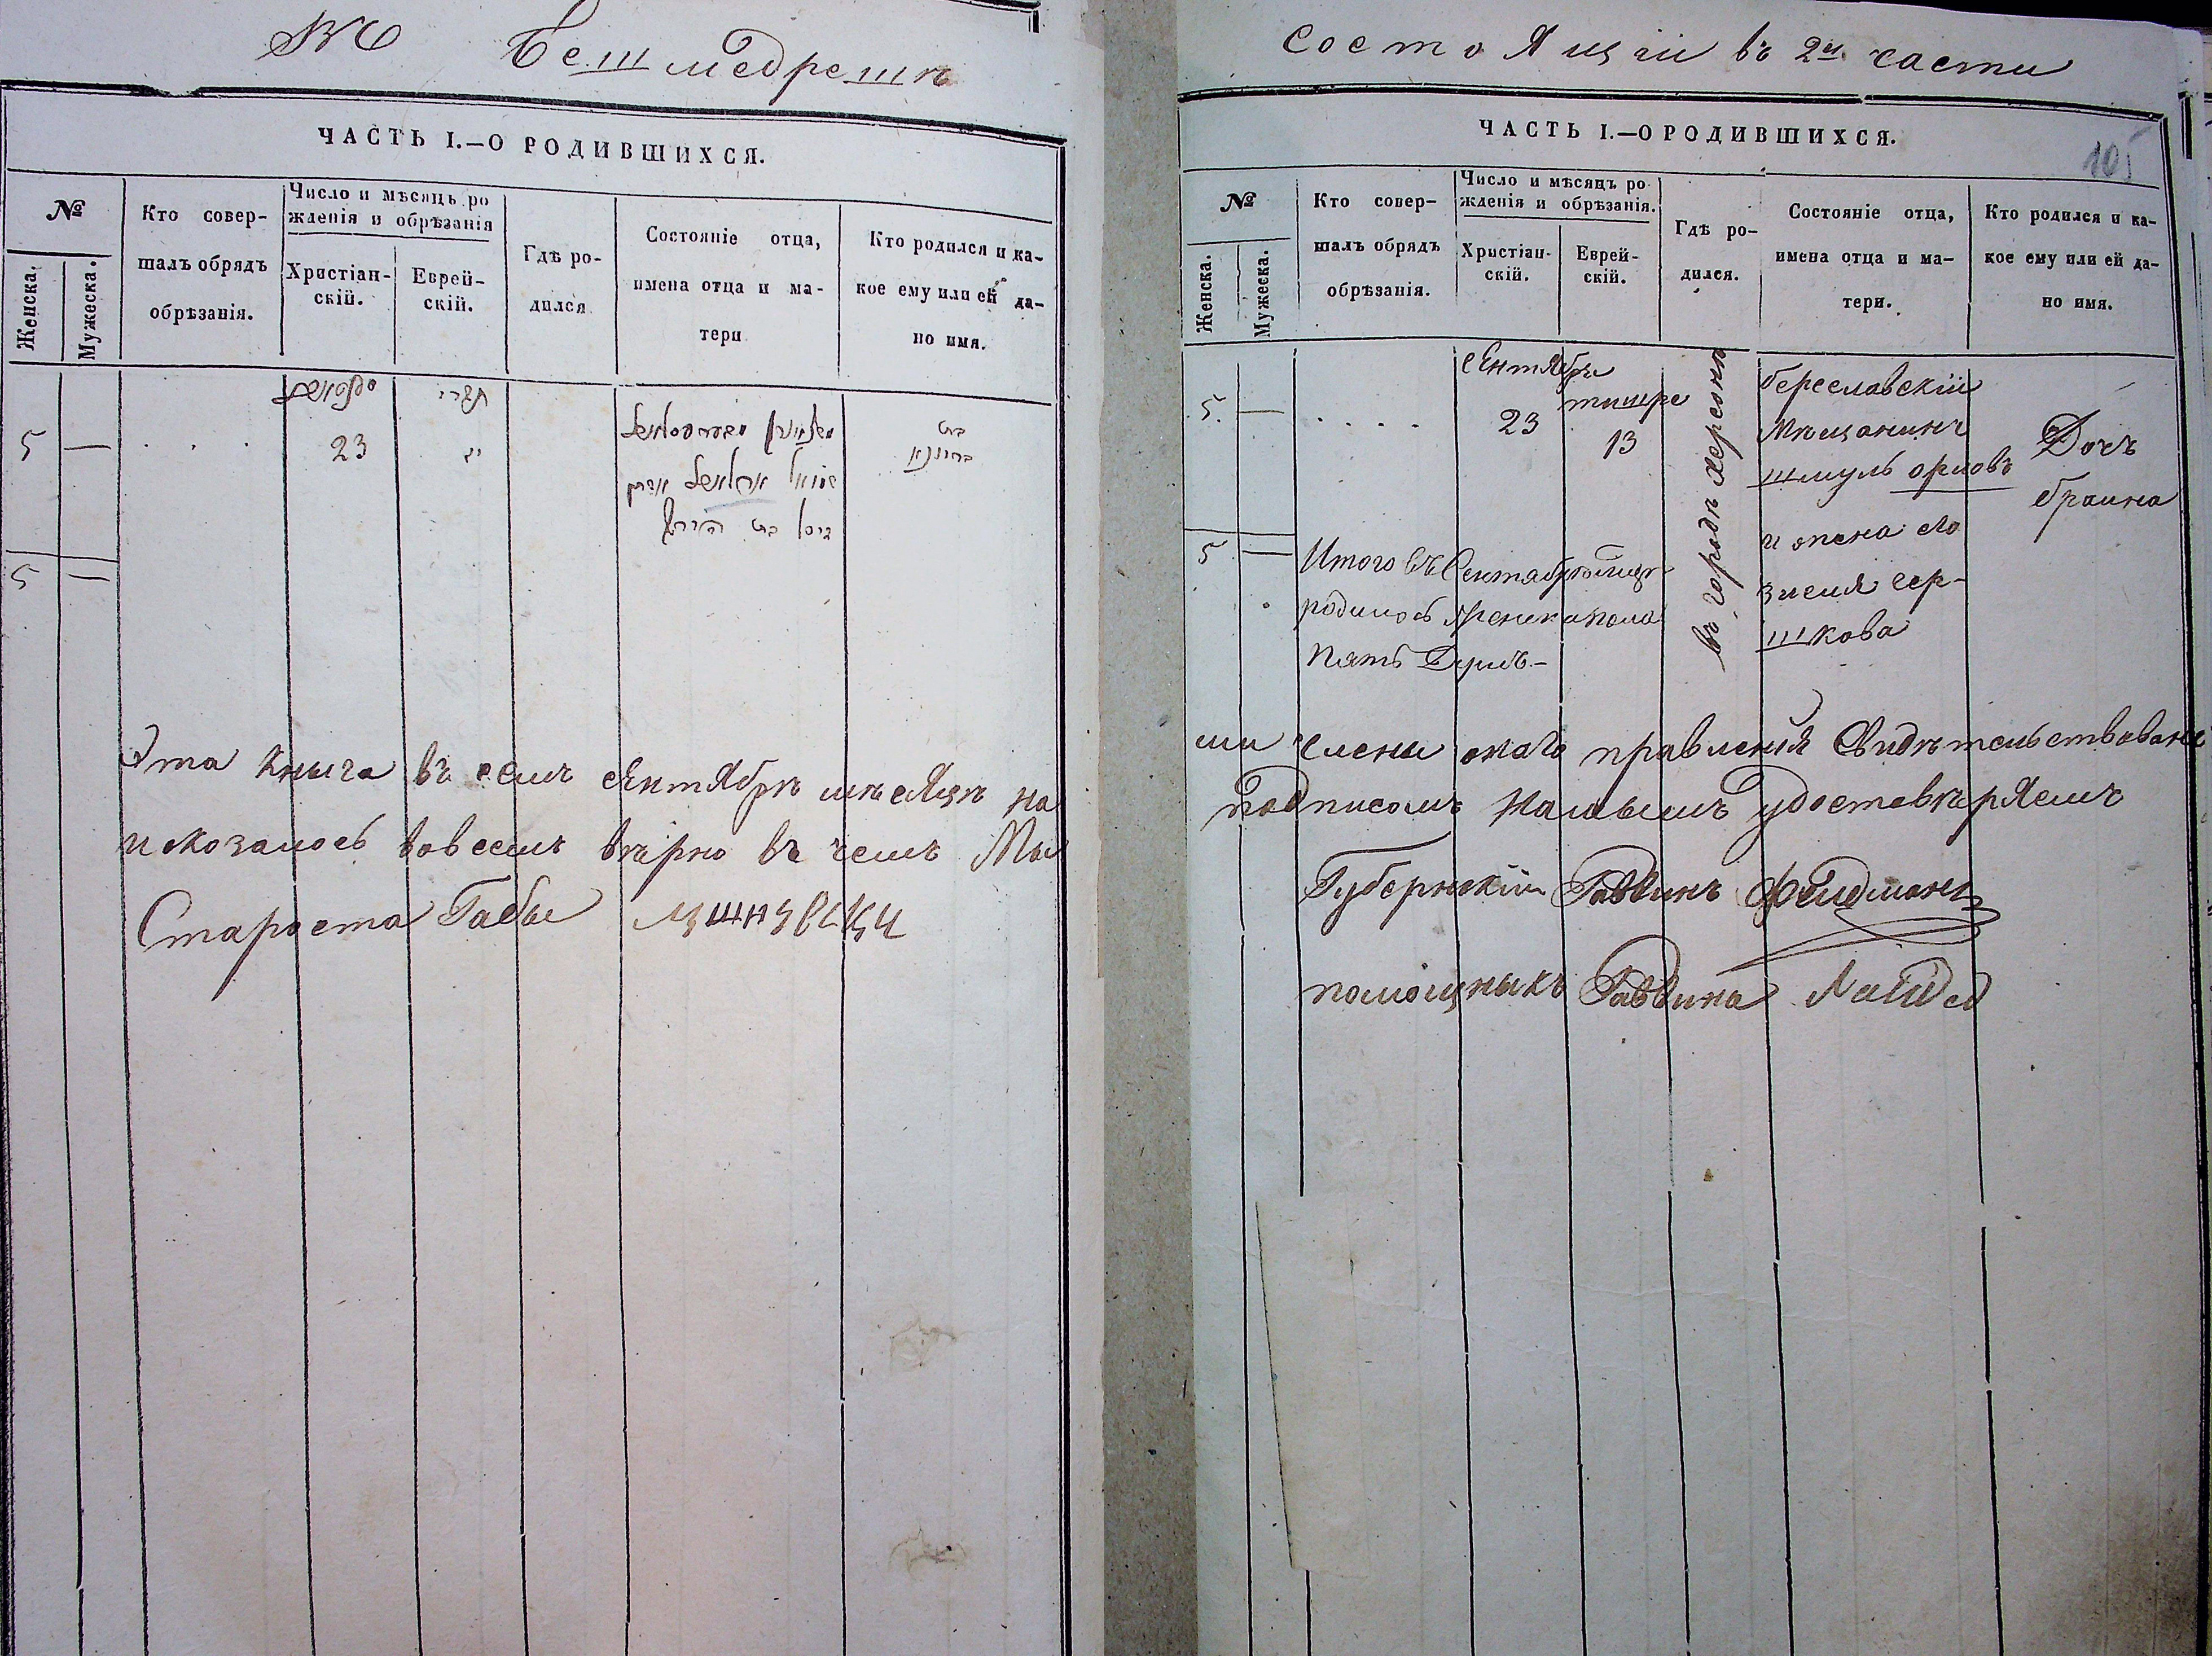 Бетмедрешъ
ЧАСТЬ I.—О РОДИВШИХСЯ.
№
Женска.
Мужеска.
Кто совер-
шалъ обрядъ
обрѣзанія.
Число и мѣсяць ро
жденія и обрѣзанія
Христіан-
скій.
Еврей-
скій.
Гдѣ ро-
дился
Состояніе отца,
имена отца и ма-
тери
Кто родился и ка-
кое ему или ей да-
но имя.
תשרי
5 — 23 יג
בת
5 —
Эта книга въ семъ сентябрѣ мѣсяцѣ на
и оказалось вовсемъ вѣрно въ чемъ Мы
Староста Габы
состоящій въ 2й части
105
ЧАСТЬ I.—О РОДИВШИХСЯ.
№
Женска.
Мужеска.
Кто совер-
шалъ обрядъ
обрѣзанія.
Число и мѣсяцъ ро-
жденія и обрѣзанія.
Христіан-
скій.
Еврей-
скій.
Гдѣ ро-
дился.
Состояніе отца,
имена отца и ма-
тери.
Кто родился и ка-
кое ему или ей да-
но имя.
сентябрь
тишре
5. — 23 13
въ городѣ херсонѣ
береславскій
мѣщанинъ
шмуль орловъ
и жена его
злемя гер-
шкова
Дочъ
браина
5 —
Итого въ Сентябрь мцѣ
родилось женска пола
пять Душъ-
ми члены онаго правления Свидѣтельствована
подписомъ нашымъ удостовѣряемъ
Губернскій Раввинъ Фелдманъ
помощныкъ Раввина